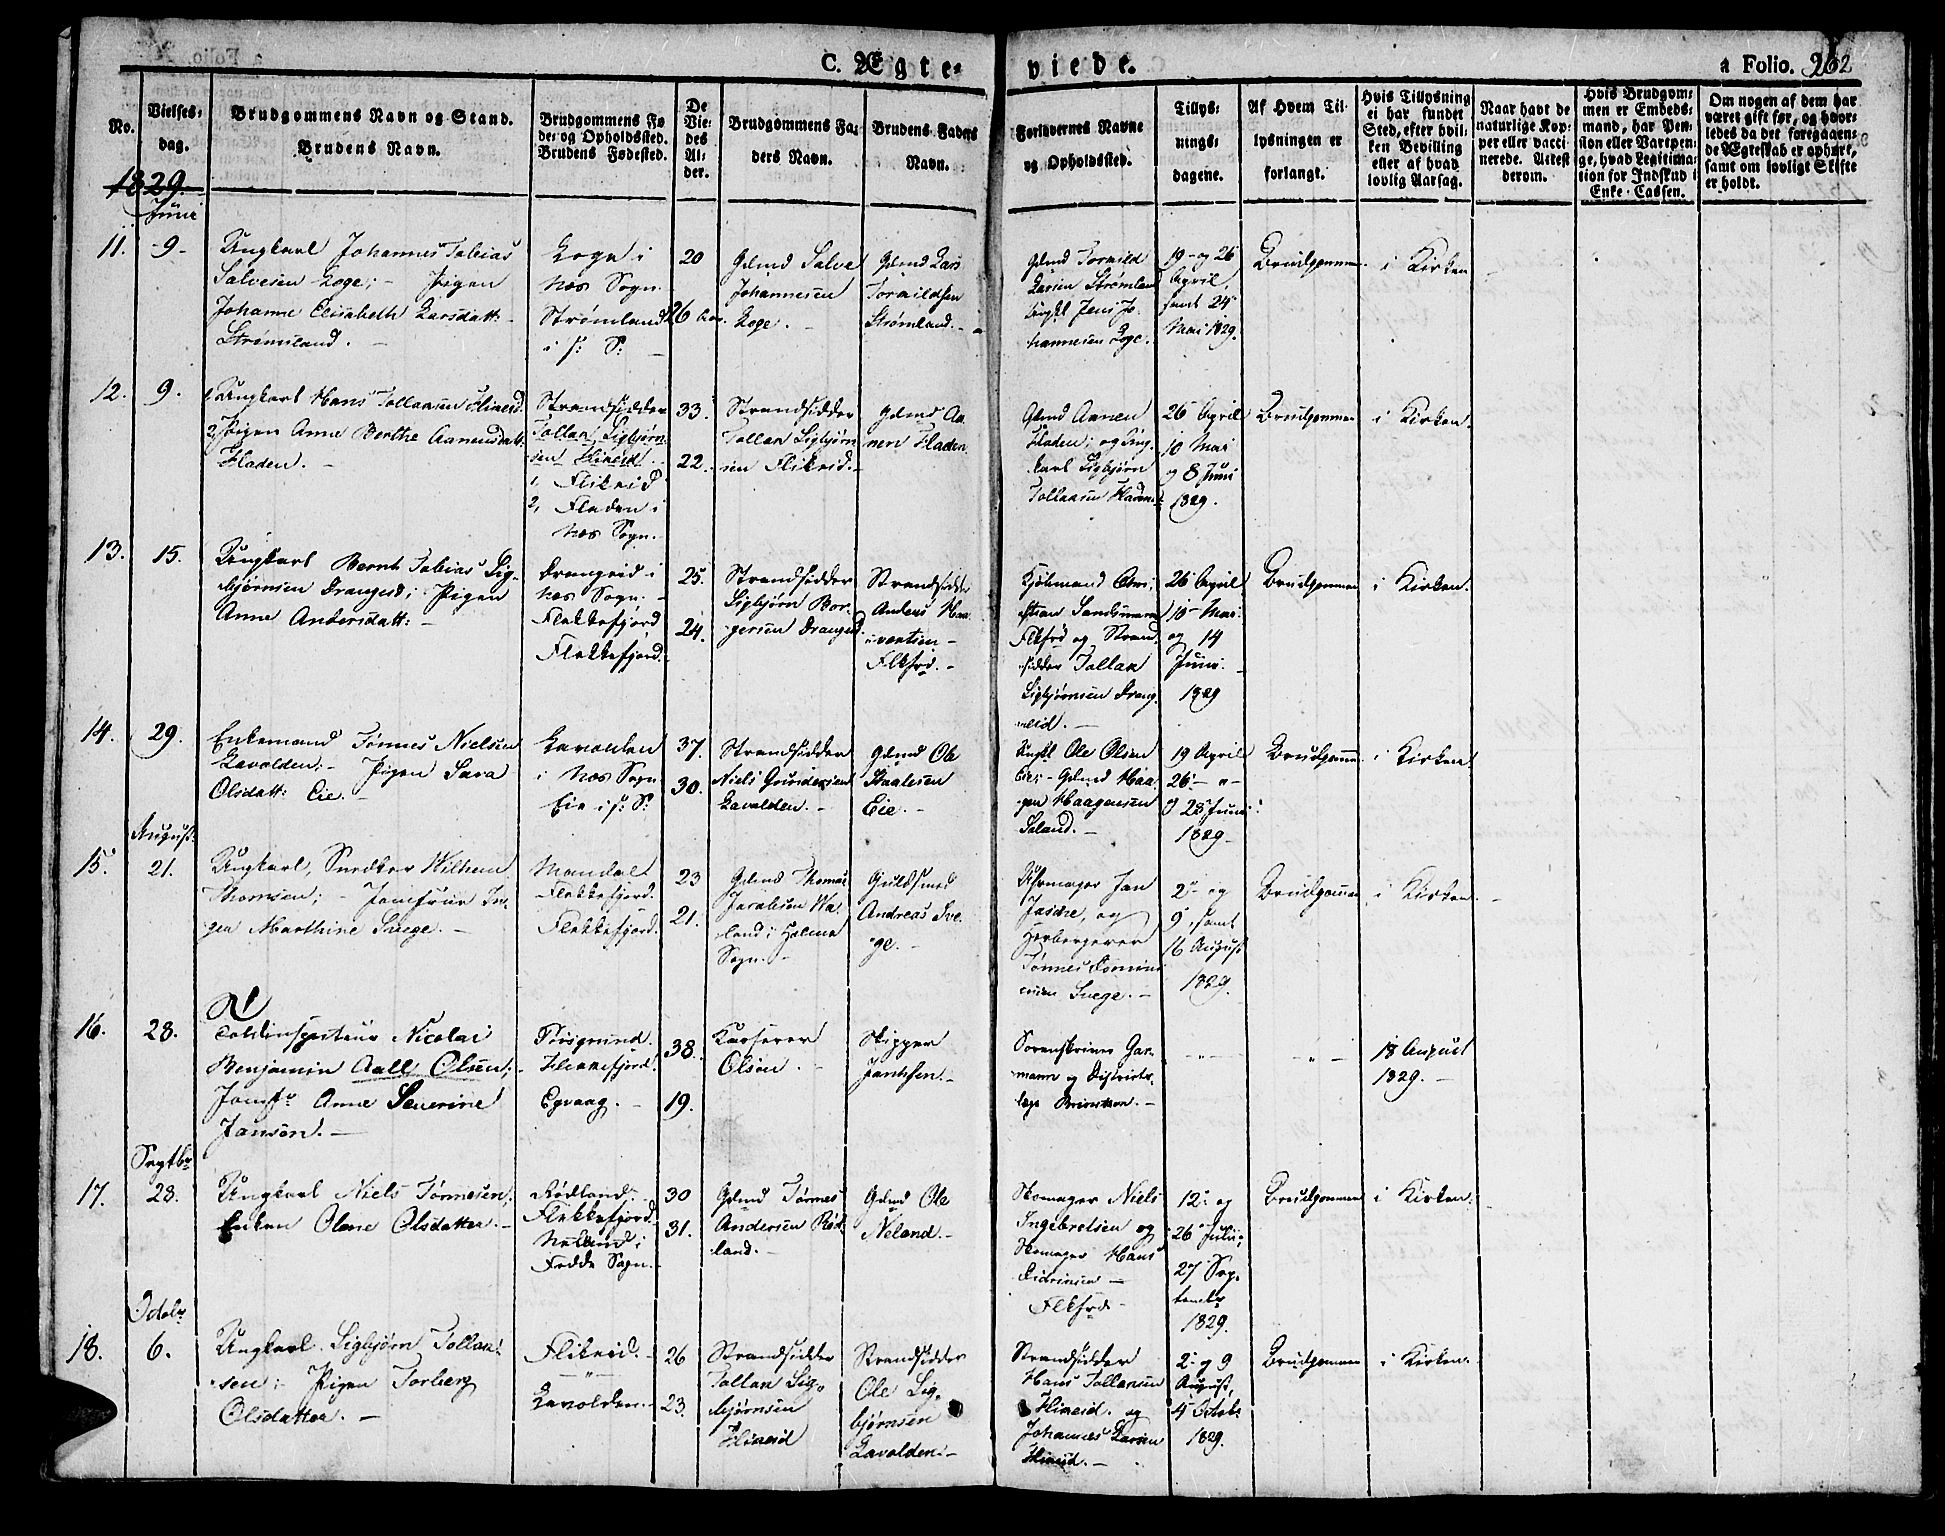 C. Ægte-
viede.
a Folio. 262
No.
Vielses-
dag.
Brudgommens Navn og Stand.
Brudens Navn.
Brudgommens Fø
de- og Opholdssted.
Brudens Fødested.
De
Vie-
des
Al-
der.
Brudgommens Fa-
ders Navn.
Brudens Faders
Navn.
Forlovernes Navne
og Opholdssted.
Tillys-
nings-
dagene.
Af Hvem Til-
lysningen er
forlangt.
Hvis Tillysning
ei har fundet
Sted, efter hvil-
ken Bevilling
eller af hvad
lovlig Aarsag.
Naar havt de
naturlige Kop-
per eller vacci-
nerede. Attest
derom.
Hvis Brudgom-
men er Embeds-
mand, har Pen-
sion eller Vartpen-
ge, hvad Legitima-
tion for Indskud i
Enke-Cassen.
Om nogen af dem har
været gift før, og hvor-
ledes da det foregaaen-
de Ægteskab er ophørt,
samt om lovligt Skifte
er holdt.
1829.
Juni
11. -9-
Ungkarl Johannes Tobias
Salvesen Loge; - Pigen
Johanne Elisabeth Larsdatt:
Strømsland. -
Loge i
Næs Sogn.
Strømland
i s: S: -
20
26 Aar.
Gdmd Salve
Johannesen
Loge. -
Gdmd Lars
Tormildsen
Strømland. -
Gdmd Tormild
Larsen Strømland
Ungkl Jens Jo-
hannesen Loge.
19- og 26
April,
samt 24
Mai 1829.
Brudgommen
i Kirken
12. 9.
1, Ungkarl Hans Tollaksen Flikeid.
2, Pigen Anne Berthe Aanensdatt:
Fladen. -
Strandsidder
Tollak Sigbjørn-
sen Flikeid.
1, Flikeid
2, Fladen i
Næs Sogn.
33.
22.
Strandsidder
Tollak Sigbjørn
sen Flikeid. -
Gdmd Aa-
nen Fladen.
Gdmd Aanen
Fladen; og Ung-
karl Sigbjørn
26 April
10 Mai
og 8 Juni
1829.
Brudgommen
i Kirken.
13. 15.
Ungkarl Bernt Tobias Sig-
bjørnsen Drangeid; Pigen
Anne Andersdatt: -
Drangeid i
Næs Sogn. -
Flekkefjord
Flekkefjord.
25.
24.
Strandsidder
Sigbjørn Bør-
gersen Drangeid.
Strandsidder
Anders
Flkfrd. -
Kjøbmand Chri-
stian Sandsmark
Flkfrd og Strand-
sidder Tollak
Sigbjørnsen Drang-
eid. -
26 April
10 Mai
og 14
Juni.
1829
Brudgommen
i Kirken.
14. 29.
Enkemand Tønnes Nielsen
Lavolden; - Pigen Sara
Olsdatt: Eie. -
Lavolden
i Næs Sogn
Eie i s: S:
37.
30.
Strandsidder
Niels Gundersen
Lavolden. -
Gdmd Ole
Staalesen
Eie. -
Ungkl Ole Olsen
Eie; - Gdmd Haa-
gen Haagensen
Seland. -
19 April
26 - " -
og 28 Juni
1829 -
Brudgomm
i Kirken
August
15. 21.
Ungkarl, Snedker Wilhem
Thomsen; - Jomfrue In-
ger Marthine Svege. -
Mandal
Flekkefjord.
Flekkefjord.
23
21.
Gdmd Thomas
Jacobsen Wa-
land i Holme
Sogn. -
Guldsmed
Andreas Sve-
ge. -
Uhrmager Jan
Jasche, og
Herbergerer
Tønnes
Svege. -
2- og
9, samt
16 August
1829.
Brudgommen
i Kirken. -
16. 28.
Toldinspecteur Nicolai
Benjamin Aall Olsen;
Jomfr Anne Severine
Jansen. -
Porsgrund.
Flekkefjord.
Egvaag. -
38.
19.
Olsen. -
Skipper
Janhsen. -
Sorenskriver Gar-
mann og Districts-
læge -
- " -
- " -
18 August
1829. -
Septbr
17. 28.
Ungkarl Niels Tønnesen;
Enken Olene Olsdatter. -
Rødland.
Flekkefjord.
Neland i
Fedde Sogn.
30
31.
Gdmd Tønnes
Andersen Rød-
land. -
Gdmd Ole
Neland. -
Skomager Niels
Ingebretsen og
Skomager Hans
Didriksen -
Flkfrd -
12- og
26 Juli,
27 Sep-
tember
1829.
Brudgommen
i Kirken.
Octobr
18. 6.
Ungkarl Sigbjørn Tollak-
sen; Pigen Torberg
Olsdatter. -
Flikeid. -
- " -
Lavolden. -
26
23.
Strandsidder
Tollak Sig-
bjørnsen
Flikeid
Strandsidder
Ole Sig-
bjørnsen
Lavolden. -
Strandsidder
Hans Tollaksen
Flikeid. og
Johannes Larsen
Flikeid. -
2- og 9
August,
4 Octobr
1829.
Brudgommen
i Kirken.